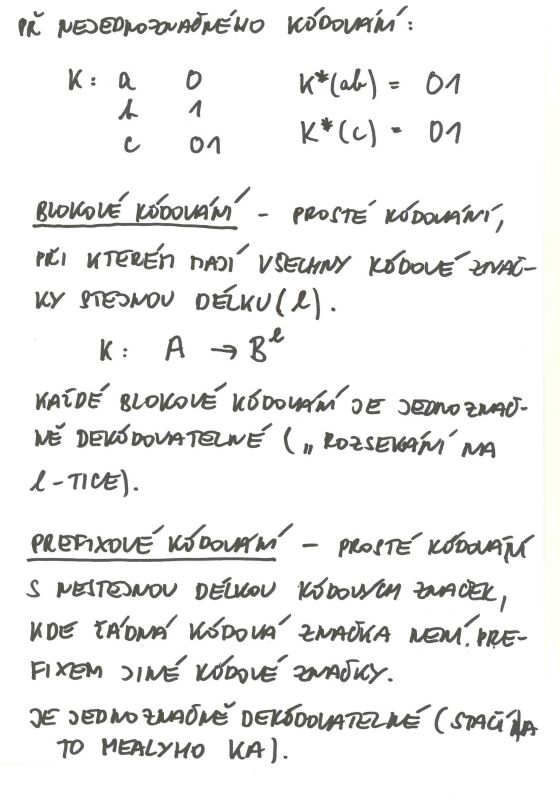 PŘ NEJEDNOZNAČNÉHO KÓDOVÁNÍ:
K: a 0 K*(ab) = 01
b 1
c 01 K*(c) = 01
BLOKOVÉ KÓDOVÁNÍ - PROSTÉ KÓDOVÁNÍ,
PŘI KTERÉM MAJÍ VŠECHNY KÓDOVÉ ZNAČ-
KY STEJNOU DÉLKU (l).
K: A → B^l
KAŽDÉ BLOKOVÉ KÓDOVÁNÍ JE JEDNOZNAČ-
NĚ DEKÓDOVATELNÉ („ROZSEKÁNÍ NA
l-TICE).
PREFIXOVÉ KÓDOVÁNÍ - PROSTÉ KÓDOVÁNÍ
S NESTEJNOU DÉLKOU KÓDOVÝCH ZNAČEK,
KDE ŽÁDNÁ KÓDOVÁ ZNAČKA NENÍ PRE-
FIXEM JINÉ KÓDOVÉ ZNAČKY.
JE JEDNOZNAČNĚ DEKÓDOVATELNÉ (STAČÍ NA
TO MEALYHO KA).